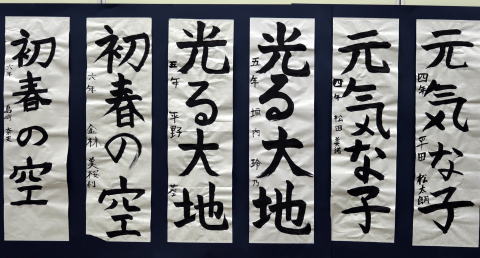 元気な子
四年 平田 松太朗
元気な子
四年 松田 美晴
光る大地
五年 垣内 玲乃
光る大地
五年 平野
初春の空
六年
初春の空
六年